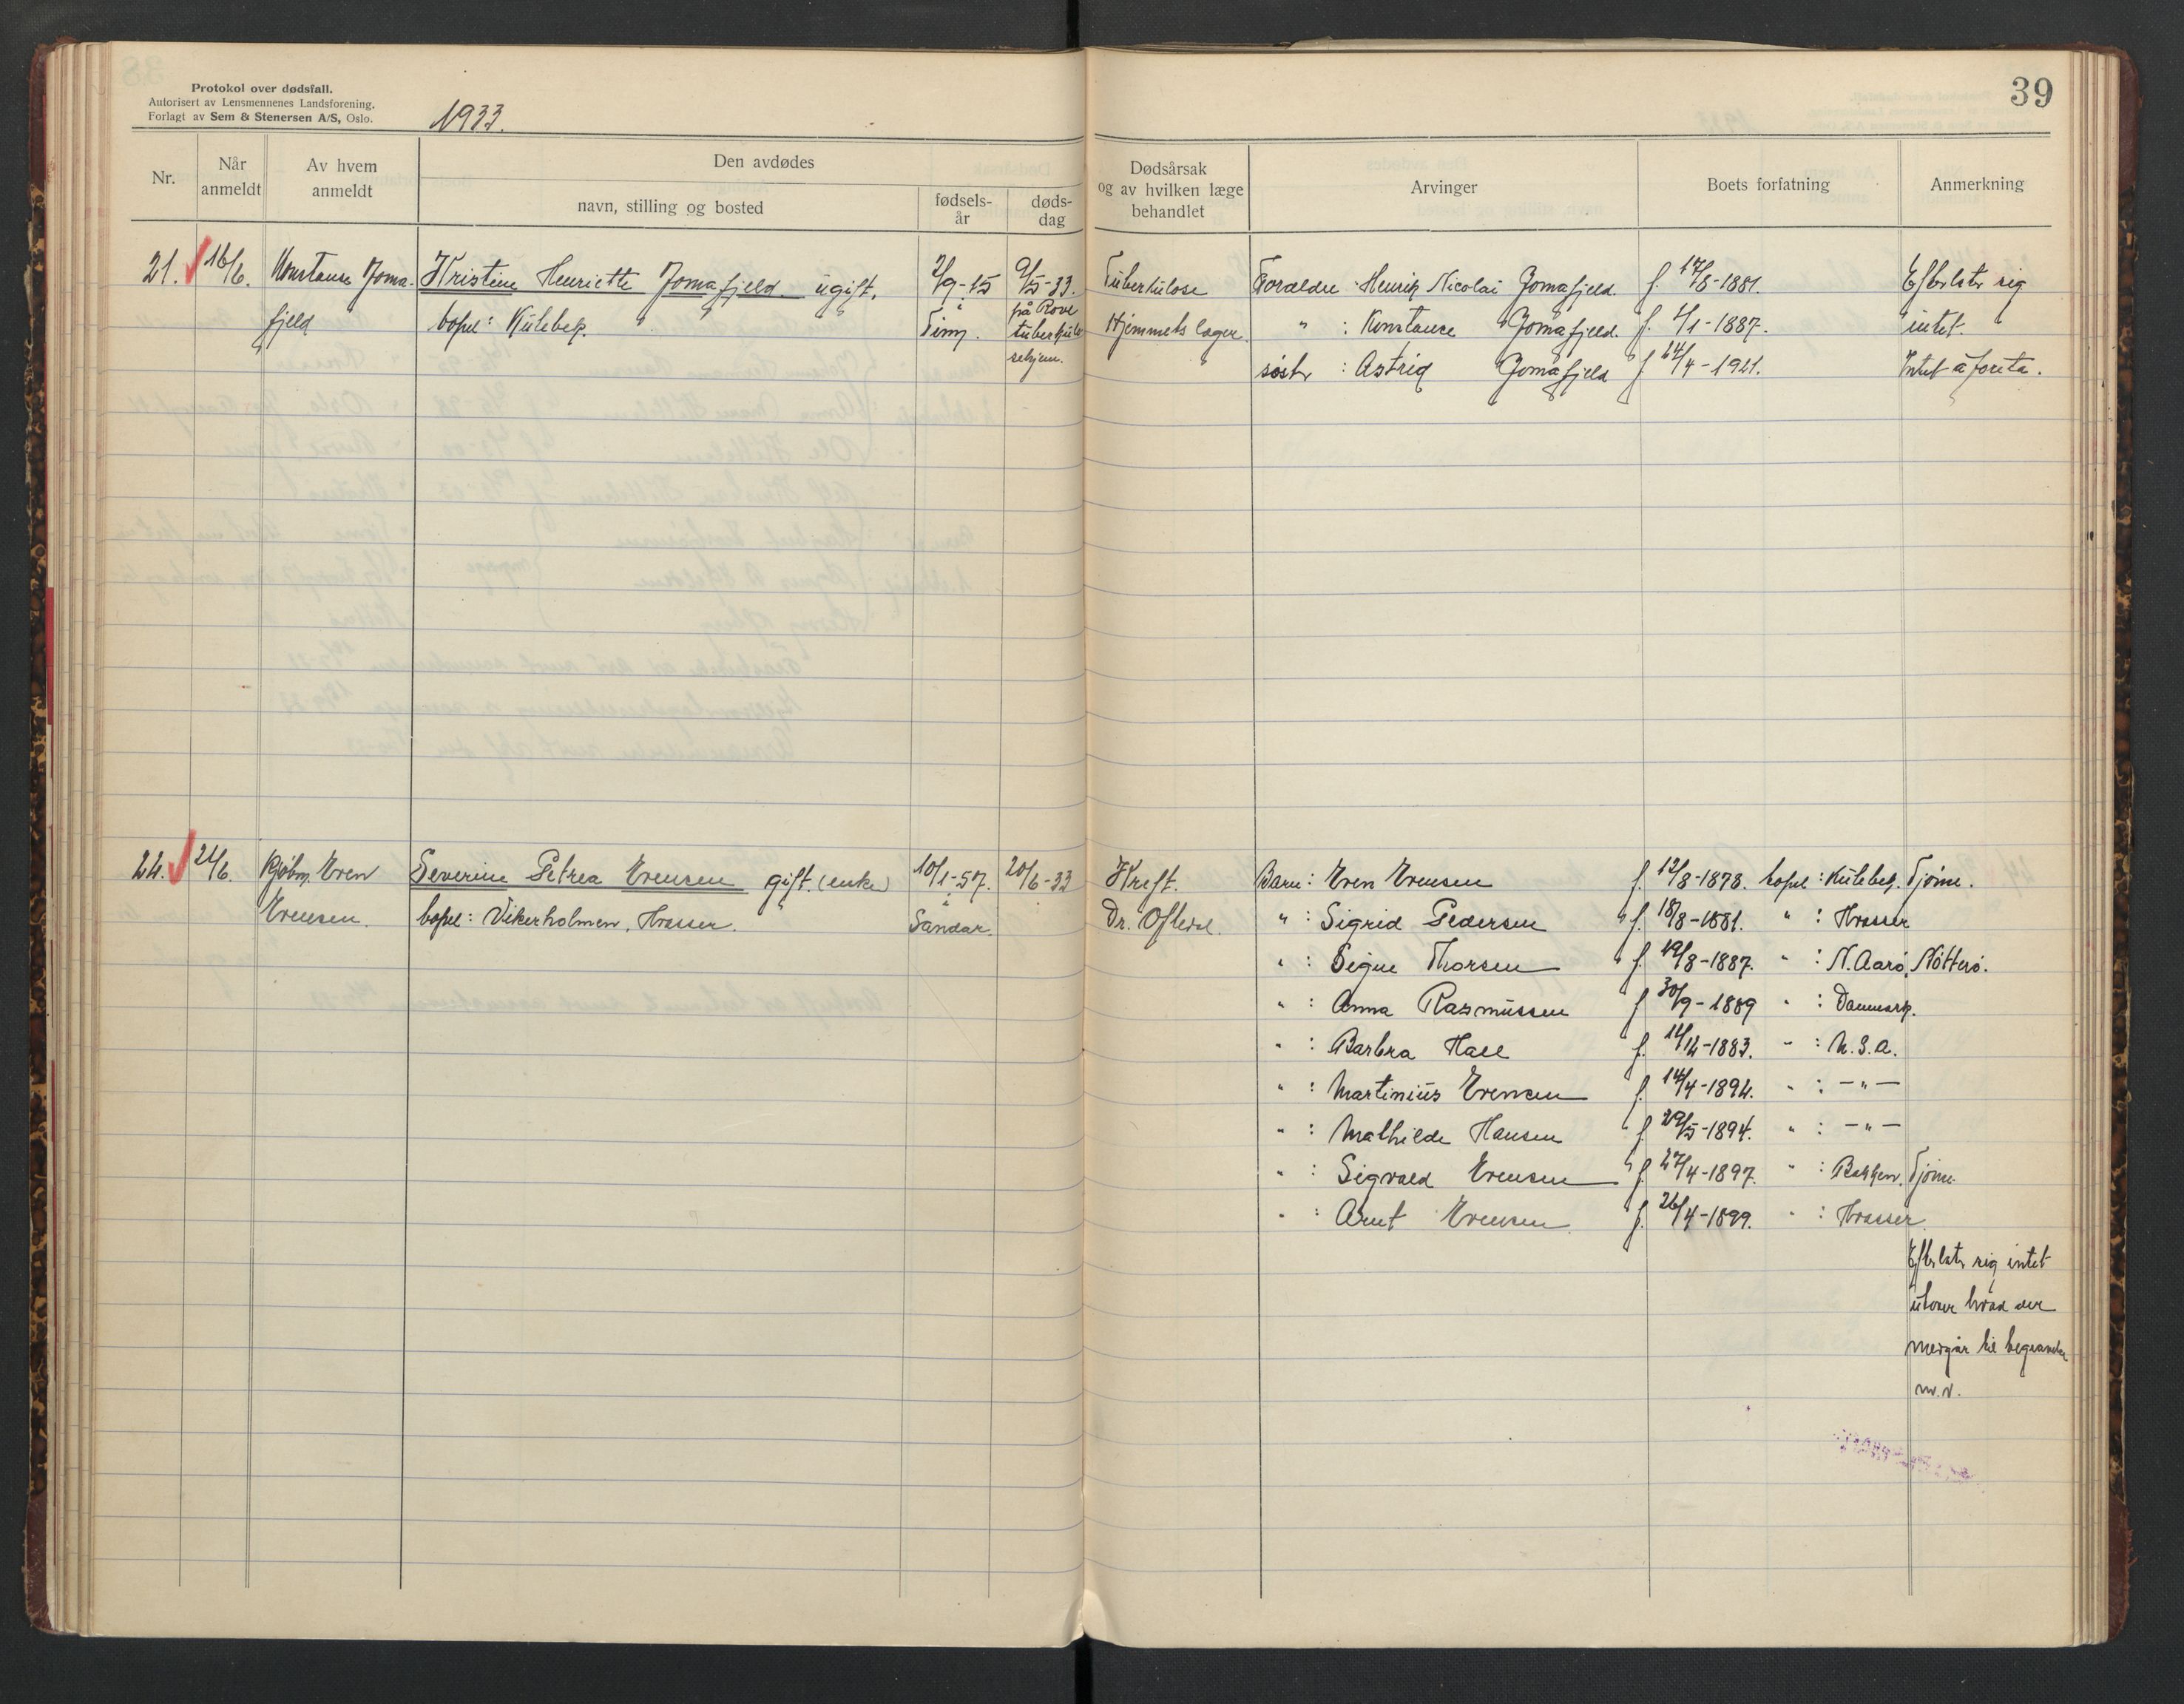 39
Protokol over dødsfall.
Autorisert av Lensmennenes Landsforening.
Forlagt av Sem & Stenersen A/S, Oslo.
1933.
Nr.
Når anmeldt
Av hvem anmeldt
Den avdødes
navn, stilling og bosted
fødsels-år
døds-dag
Dødsårsak og av hvilken læge behandlet
Arvinger
Boets forfatning
Anmerkning
21. 16/6. Konstanse Joma- Kristine Henriette Jomafjeld. ugift. 2/9-15 9/5-33. Tuberkulose Forældre Henrik Nicolai Jomafjeld. f. 17/8-1881. Efterlater sig
fjeld bopel: Kulebek. i Timg. på Rove tuberkulo Hjemmets læger. " : Konstanse Jomafjeld. f. 1/1-1887. intet.
sehjem. søster : Astrid Jomafjeld f 14/4-1921. Intet å foreta.
22. 21/6. Kjøbm. Even Severine Petrea Evensen gift. (enke) 10/1-57. 20/6-33 Kreft. Barn: Even Evensen f. 12/8-1878. bopel: Kulebek. Tjøme.
Evensen. bopel: Vikerholmen, Hvasser. i Sandar. Dr. Oftedal. " : Sigrid Pedersen f. 18/8-1881. " : Hvasser
" : Signe Thorsen f. 19/8-1887. " : N. Aarø, Nøtterø.
" : Anna Rasmussen f 30/9-1889 " : Danmark.
" : Barbra Hall f. 14/12-1883. " : U.S.A.
" : Martinius Evensen f. 14/4-1892. " : -"-
" : Mathilde Hansen f 29/5-1894. " : -"-
" : Sigvald Evensen f. 27/4-1897. " : Bakken, Tjøme.
" : Arnt Evensen f. 26/4-1899. " : Hvasser.
Efterlater sig intet
utover hvad der
medgår til begravelse
m.v.